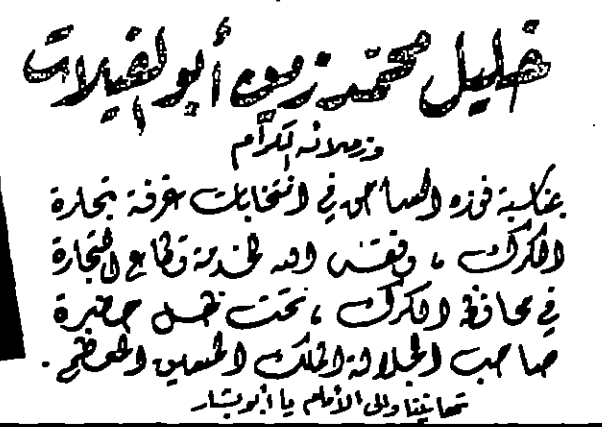 خليل محمد زيد أبو الفيلات
وزملائه الكرام
بمناسبة فوزه الساحق في انتخابات غرفة تجارة
الكرك ، وفقكم الله لخدمة قطاع التجارة
في محافظة الكرك ، تحت ظل حضرة
صاحب الجلالة الملك الحسين المعظم .
تهانينا وإلى الأمام يا أبو بشار